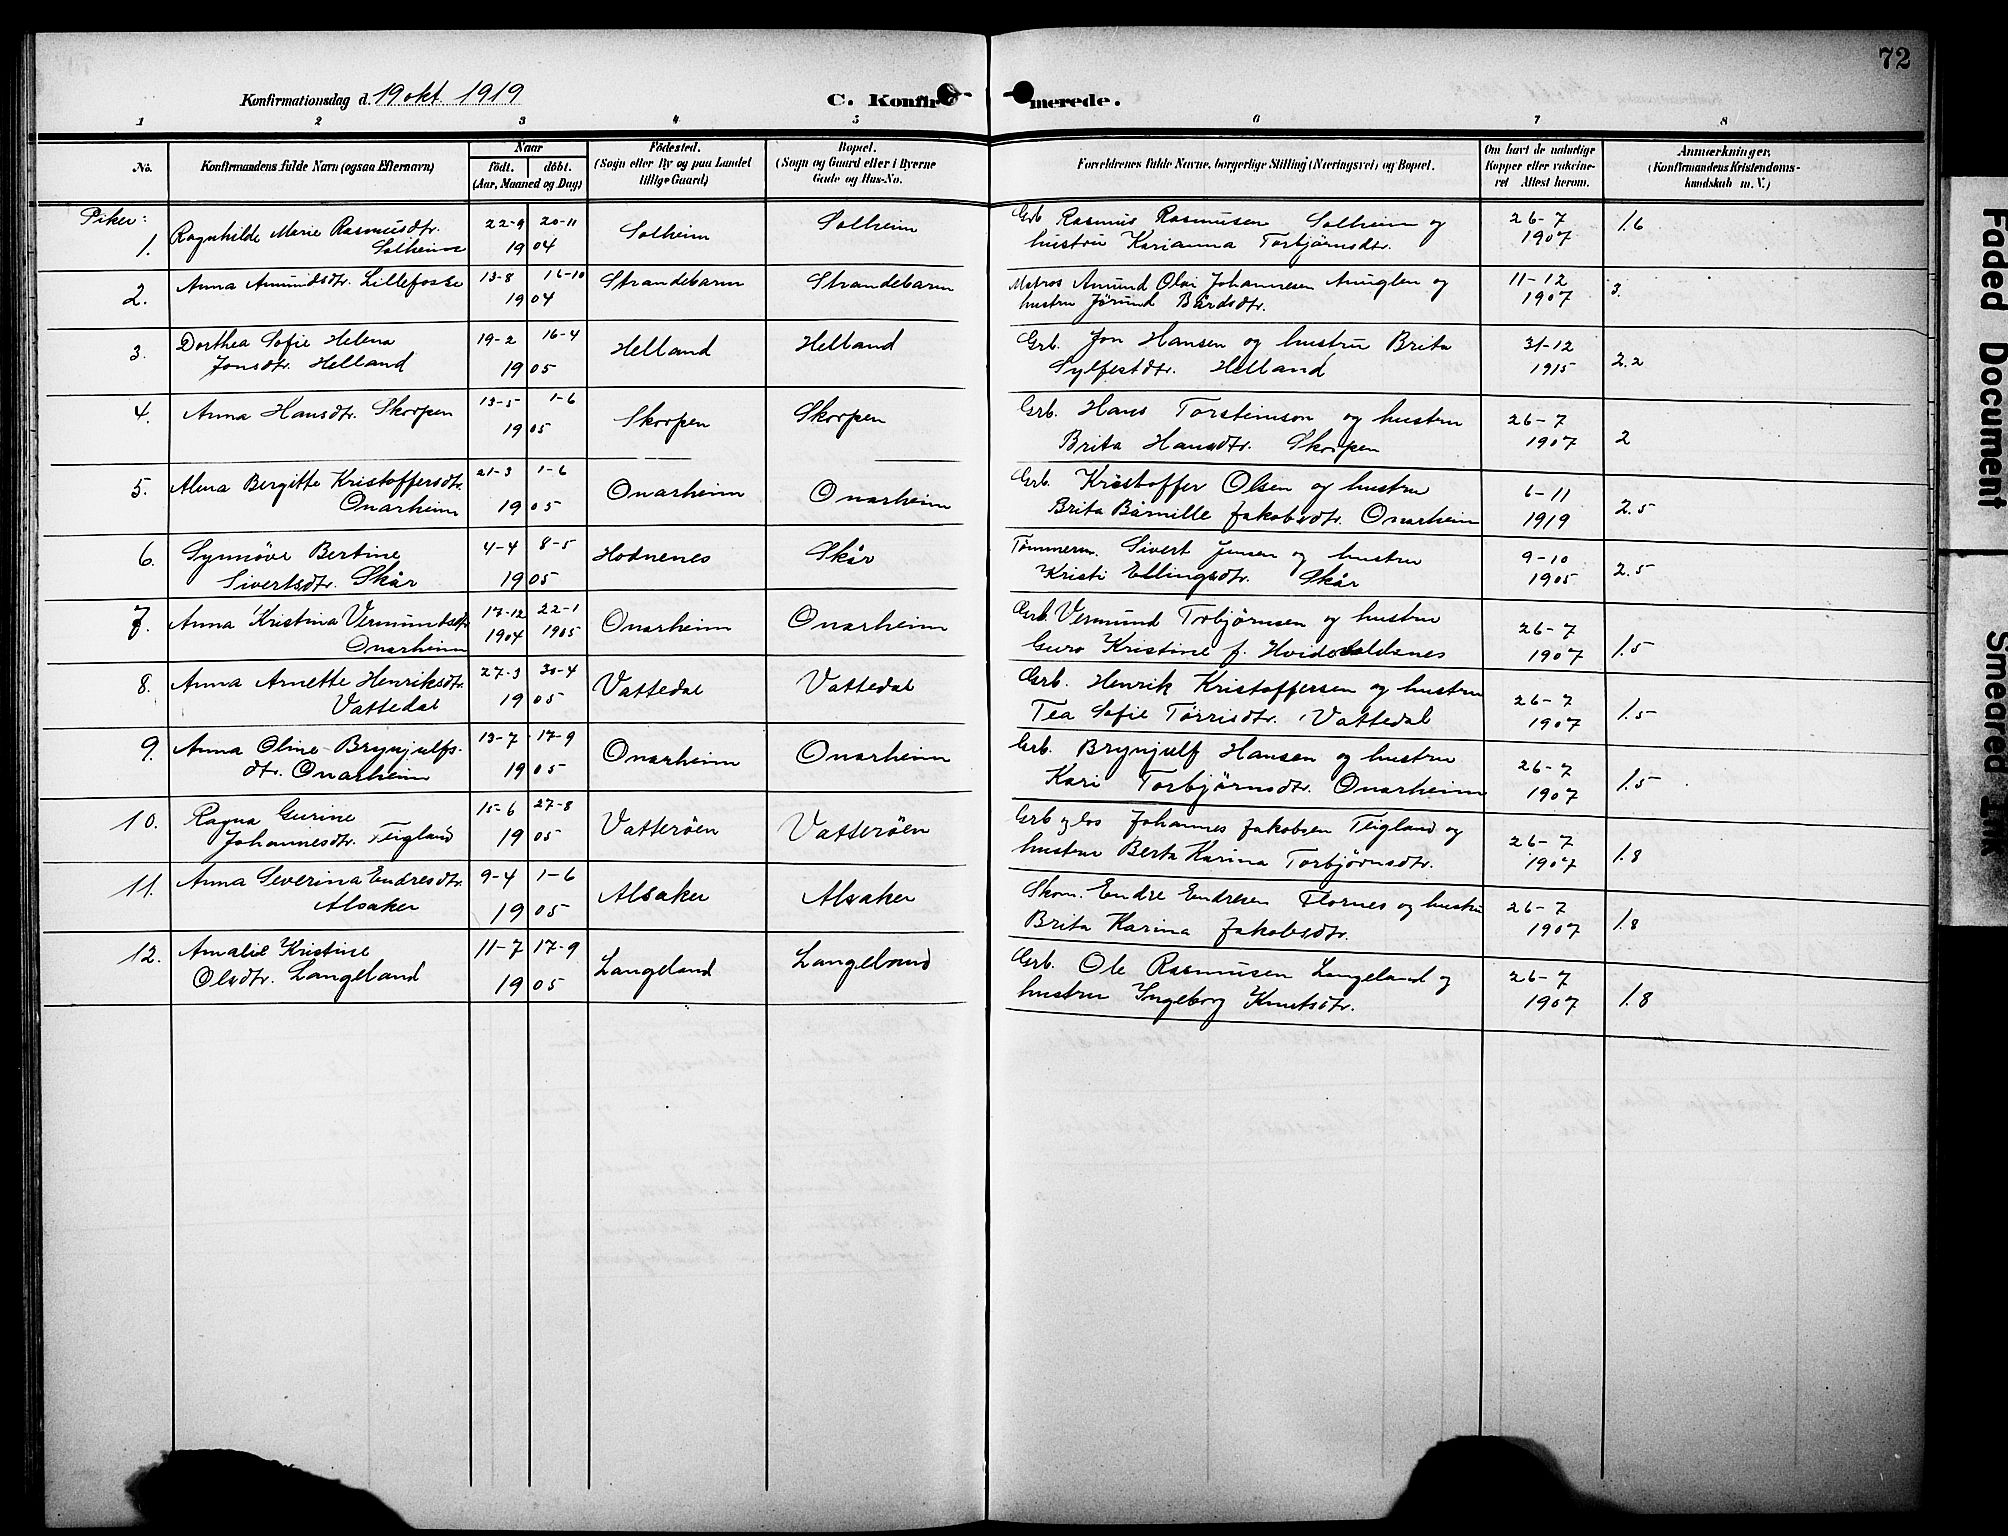 72
Konfirmationsdag d. 19 okt. 1919
C. Konfirmerede.
1 2 3 4 5 6 7 8
No. Konfirmandens fulde Navn (ogsaa Efternavn) Naar födt. döbt. (Aar, Maaned og Dag) Födested. (Sogn eller By og paa Landet tillige Gaard) Bopæl. (Sogn og Gaard eller i Byerne Gade og Hus-No. Forældrenes fulde Navne, borgerlige Stilling (Næringsvei) og Bopæl. Om havt de naturlige Kopper eller vakcineret Attest herom. Anmærkninger. (Konfirmandens Kristendomskundskab m. V.)
Piker:
1. Ragnhilde Marie Rasmusdtr. 22-9 20-11 Solheim Solheim Grb Rasmus Rasmusen Solheim og 26-7 1.6
Solheim 19 04 hustru Karianna Torbjørnsdtr. 1907
2. Anna Amundsdtr. Lillefosse 13-8 16-10 Strandebarm Strandebarm Matros Amund Olai Johannesen Aniglen og 11-12 3.
19 04 hustru Jørund Bårdsdtr. 1907
3. Dorthea Sofie Helena 19-2 16-4 Helland Helland Grb. Jon Hansen og hustru Brita 31-12 2.2
Jonsdtr. Helland 19 05 Sylfestdtr. Helland 1915
4. Anna Hansdtr. Skorpen 13-5 1-6 Skorpen Skorpen Grb. Hans Torsteinson og hustru 26-7 2
19 05 Brita Hansdtr. Skorpen 1907
5. Alma Bergitte Kristoffersdtr. 21-3 1-6 Onarheim Onarheim Grb. Kristoffer Olsen og hustru 6-11 2.5
Onarheim 19 05 Brita Bårnille Jakobsdtr. Onarheim 1919
6. Synnøve Bertine 4-4 8-5 Hodnenes Skår Tømmerm. Sivert Jensen og hustru 9-10 2.5
Sivertsdtr. Skår 19 05 Kristi Ellingsdtr. Skår 1905
7. Anna Kristina Vermundsdtr 17-12 22-1 Onarheim Onarheim Grb. Vermund Torbjørnsen og hustru 26-7 1.5
Onarheim 1904 1905 Guro Kristine f. 1907
8. Anna Arnette Henriksdtr. 27-3 30-4 Vattedal Vattedal Grb. Henrik Kristoffersen og hustru 26-7 1.5
Vattedal 19 05 Tea Sofie Tørrisdtr. Vattedal 1907
9. Anna Oline Brynjulfs- 13-7 17-9 Onarheim Onarheim Grb. Brynjulf Hansen og hustru 26-7 1.5
dtr. Onarheim 19 05 Kari Torbjørnsdtr. Onarheim 1907
10. Ragna Gurine 15-6 27-8 Vatterøen Vatterøen Grb og los Johannes Jakobsen Teigland og 26-7 1.8
Johannesdtr. Teigland 19 05 hustru Berta Karina Torbjørnsdtr. 1907
11. Anna Severina Endresdtr. 9-4 1-6 Alsaker Alsaker Skom. Endre Endresen Flornes og hustru 26-7 1.8
Alsaker 19 05 Brita Karina Jakobsdtr. 1907
12. Amalie Kristine 11-7 17-9 Langeland Langeland Grb. Ole Rasmusen Langeland og 26-7 1.8
Olsdtr. Langeland 19 05 hustru Ingeborg Knutsdtr. 1907
Faded Document
Smeared Ink